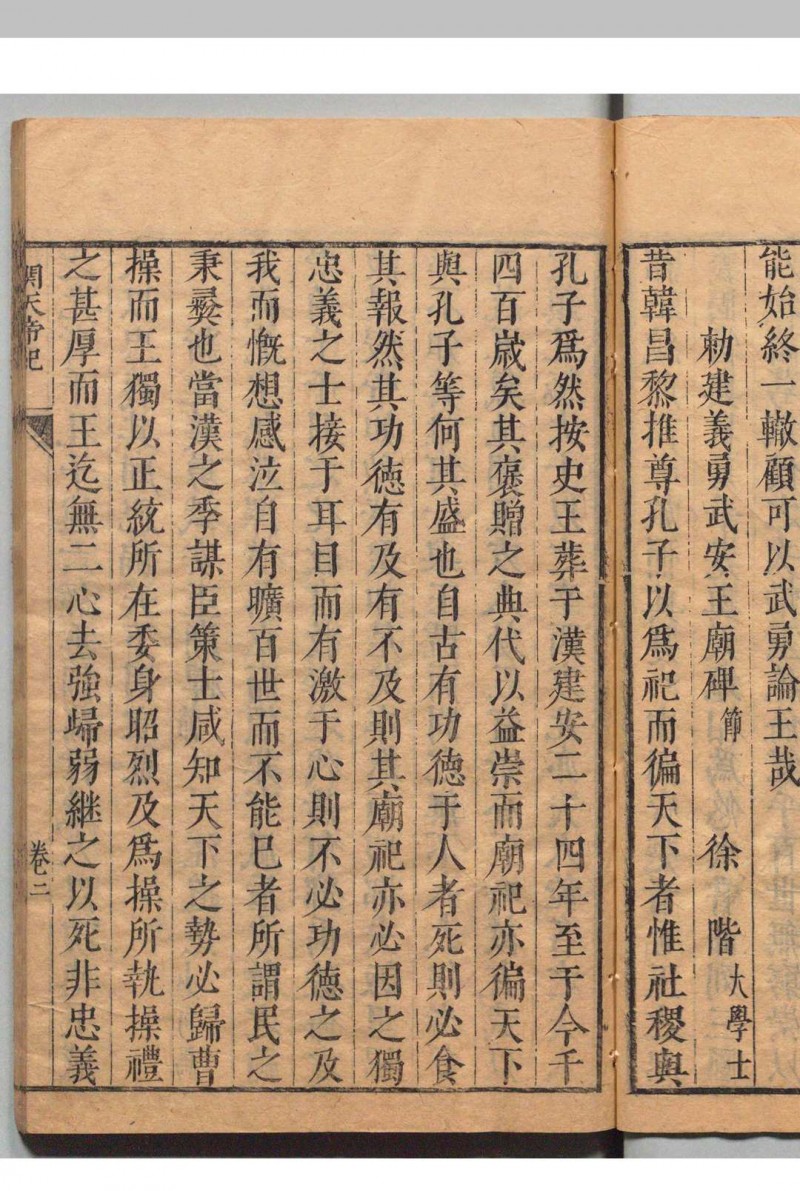 能始終一轍顧可以武勇論王哉
勅建義勇武安王廟碑節 徐階大學士
昔韓昌黎推尊孔子以爲祀而徧天下者惟社稷與
孔子爲然按史王葬于漢建安二十四年至于今千
四百歲矣其褒贈之典代以益崇而廟祀亦徧天下
與孔子等何其盛也自古有功德于人者死則必食
其報然其功德有及有不及則其廟祀亦必因之獨
忠義之士接于耳目而有激于心則不必功德之及
我而慨想感泣自有曠百世而不能已者所謂民之
秉彛也當漢之季謀臣策士咸知天下之勢必歸曹
操而王獨以正統所在委身昭烈及爲操所執操禮
之甚厚而王迄無二心去強歸弱継之以死非忠義
関天帝紀 卷二